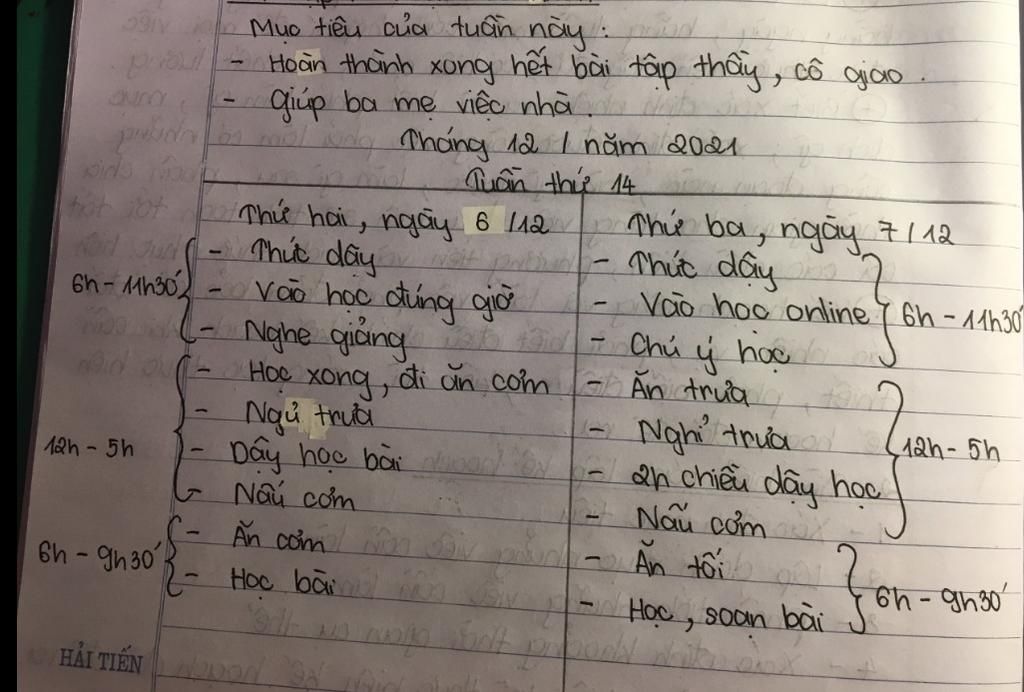 Mục tiêu của tuần này :
- Hoàn thành xong hết bài tập thầy, cô giao .
- Giúp ba mẹ việc nhà .
Tháng 12 / năm 2021
Tuần thứ 14
Thứ hai, ngày 6 /12
6h - 11h30'
- Thức dậy
- Vào học đúng giờ
- Nghe giảng
12h - 5h
- Học xong, đi ăn cơm
- Ngủ trưa
- Dậy học bài
- Nấu cơm
6h - 9h30'
- Ăn cơm
- Học bài
Thứ ba, ngày 7 / 12
- Thức dậy
- Vào học online
- Chú ý học
6h - 11h30'
- Ăn trưa
- Nghỉ trưa
- 2h chiều dậy học
- Nấu cơm
12h - 5h
- Ăn tối
- Học, soạn bài
6h - 9h30'
HẢI TIẾN